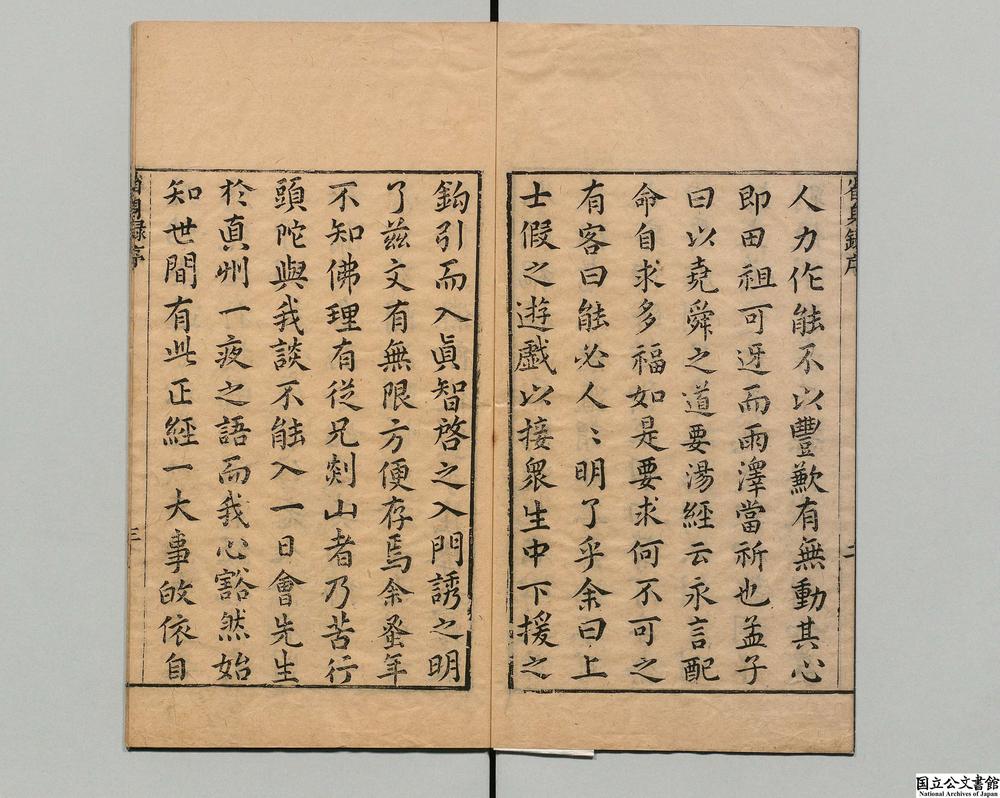 人力作能不以豐歉有無動其心
即田祖可迓而雨澤當祈也孟子
曰以堯舜之道要湯經云永言配
命自求多福如是要求何不可之
有客曰能必人〻明了乎余曰上
士假之遊戲以接衆生中下援之
鈎引而入眞智啓之入門誘之明
了茲文有無限方便存焉余蚤年
不知佛理有從兄剡山者乃苦行
頭陀與我談不能入一日會先生
於真州一夜之語而我心豁然始
知世間有此正經一大事皈依自
二
三
国立公文書館
National Archives of Japan